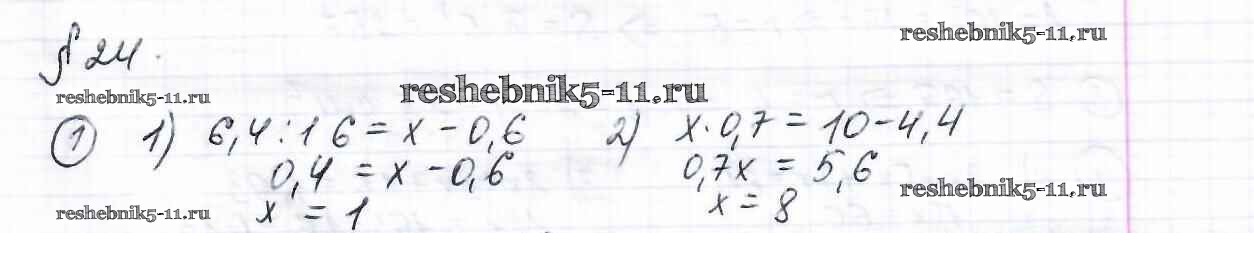 § 24.
reshebnik5-11.ru
reshebnik5-11.ru
reshebnik5-11.ru
1 1) 6,4:16=x-0,6 2) x·0,7=10-4,4
0,4=x-0,6 0,7x=5,6
reshebnik5-11.ru
x=1 x=8
reshebnik5-11.ru